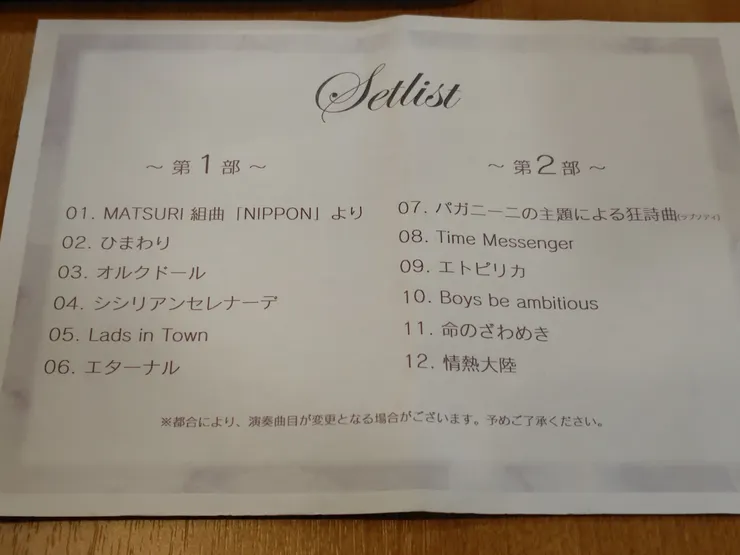 Setlist
～ 第 1 部 ～
01. MATSURI 組曲「NIPPON」より
02. ひまわり
03. オルクドール
04. シシリアンセレナーデ
05. Lads in Town
06. エターナル
～ 第 2 部 ～
07. パガニーニの主題による狂詩曲(ラプソディ)
08. Time Messenger
09. エトピリカ
10. Boys be ambitious
11. 命のざわめき
12. 情熱大陸
※都合により、演奏曲目が変更となる場合がございます。予めご了承ください。